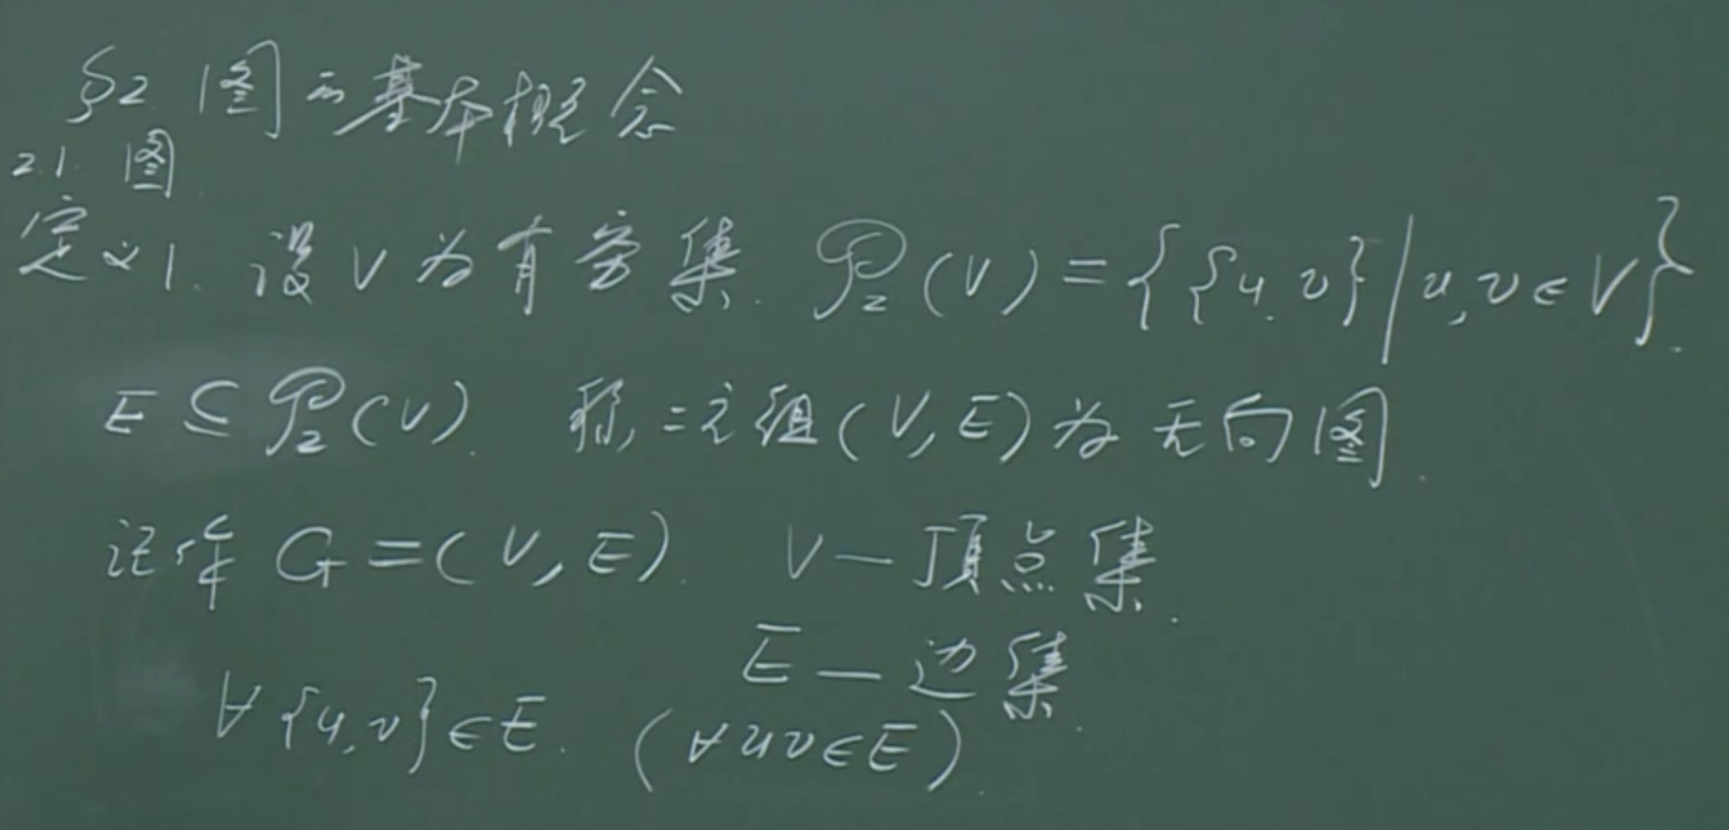 §2 图的基本概念
2.1. 图
定义1. 设V为有穷集. 𝒫₂(V)={{u,v}|u,v∈V}.
E⊆𝒫₂(V). 称二元组(V,E)为无向图.
记作 G=(V,E). V—顶点集.
E—边集.
∀{u,v}∈E. (∀uv∈E).